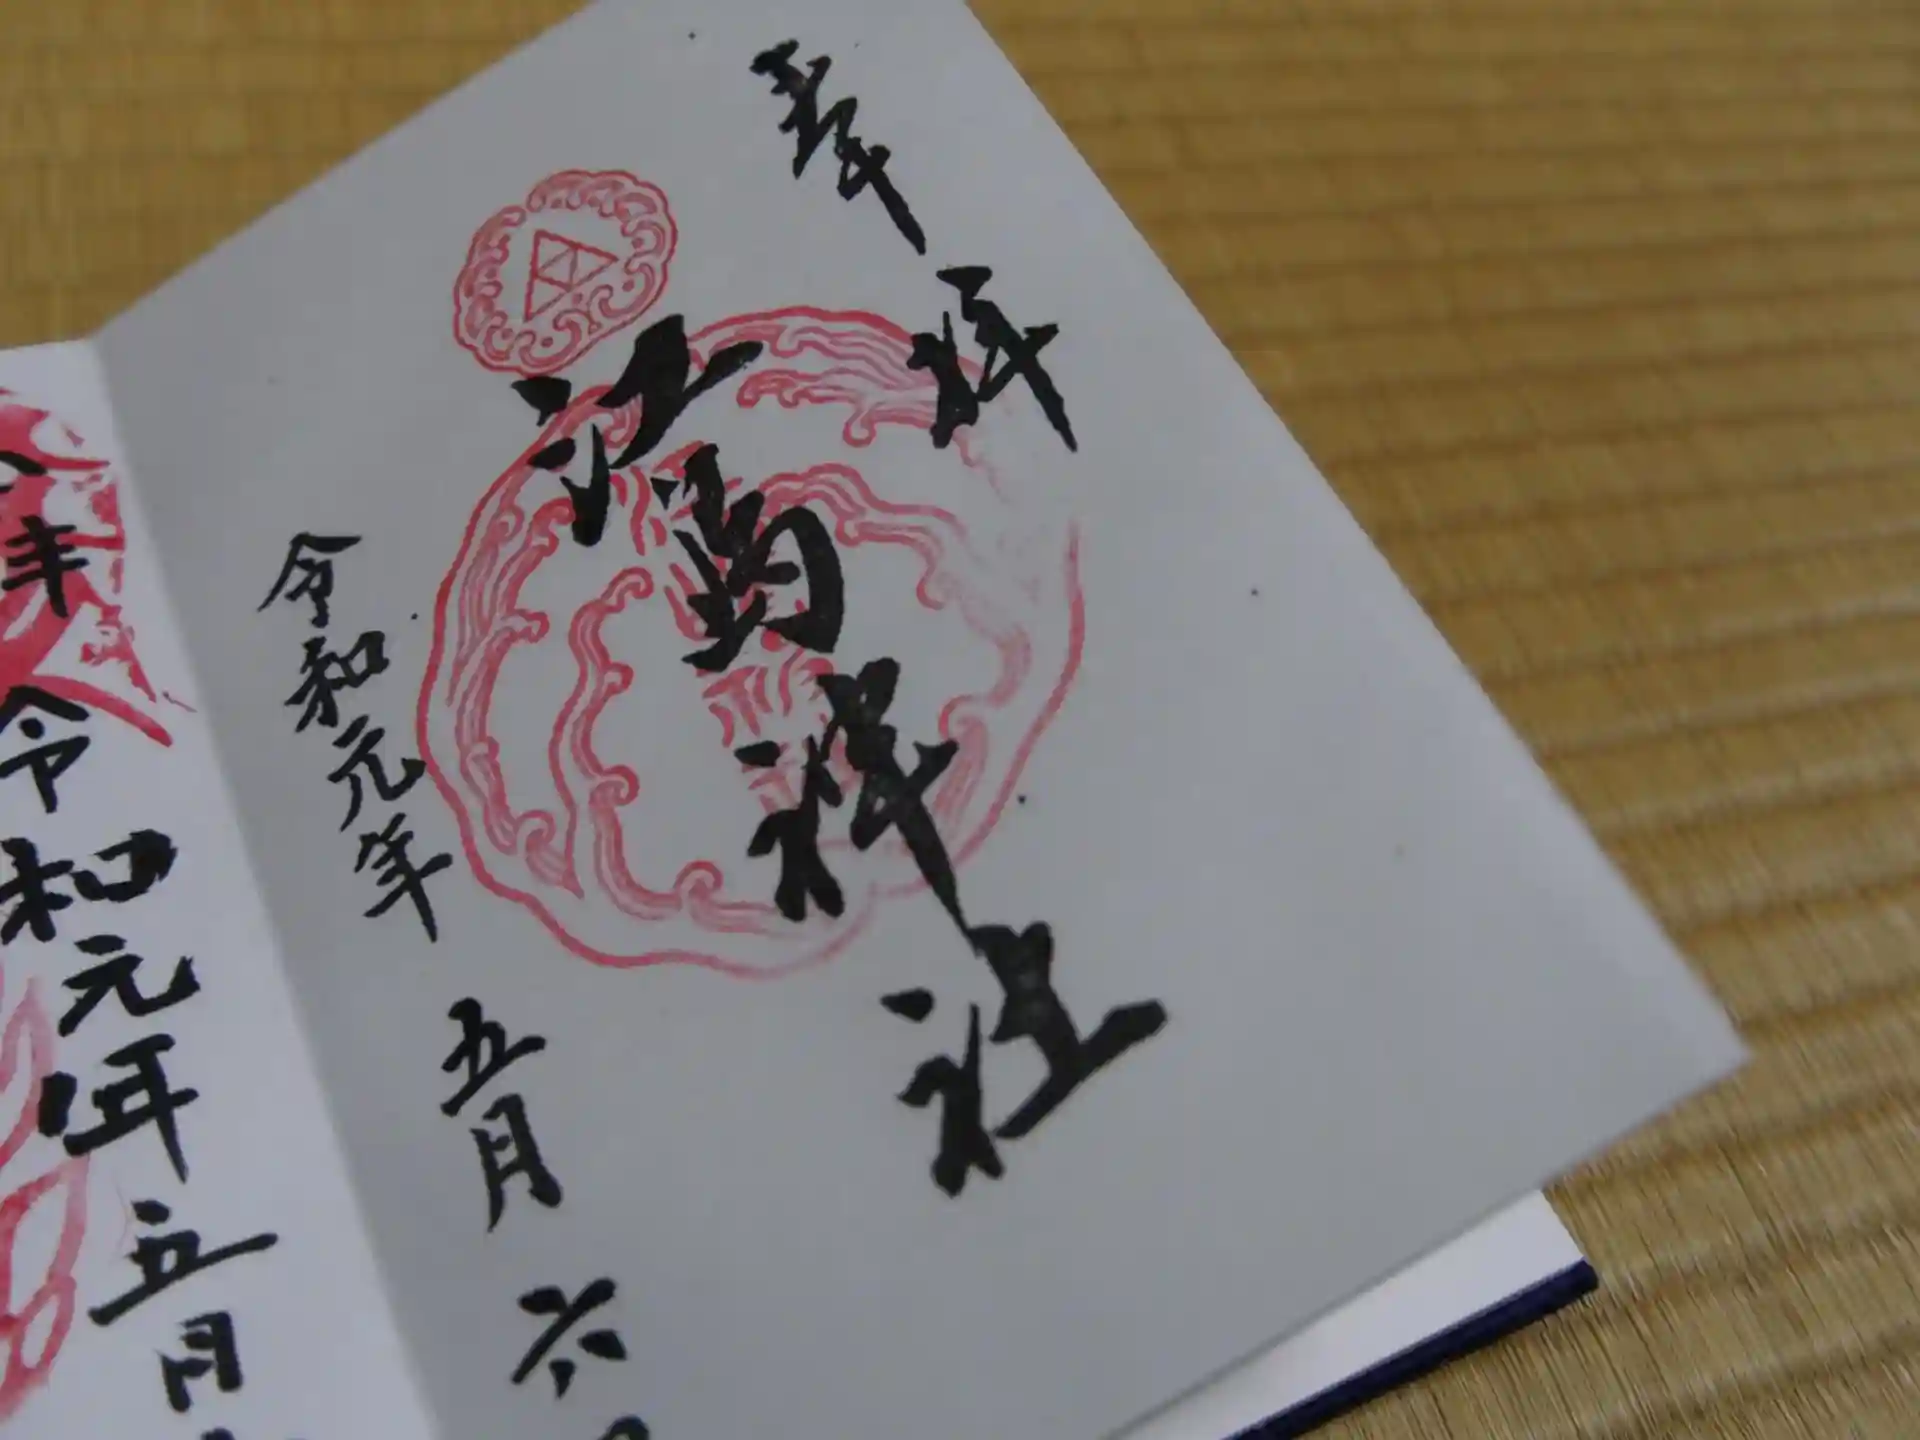 奉拝
江島神社
令和元年五月六日
令和元年五月